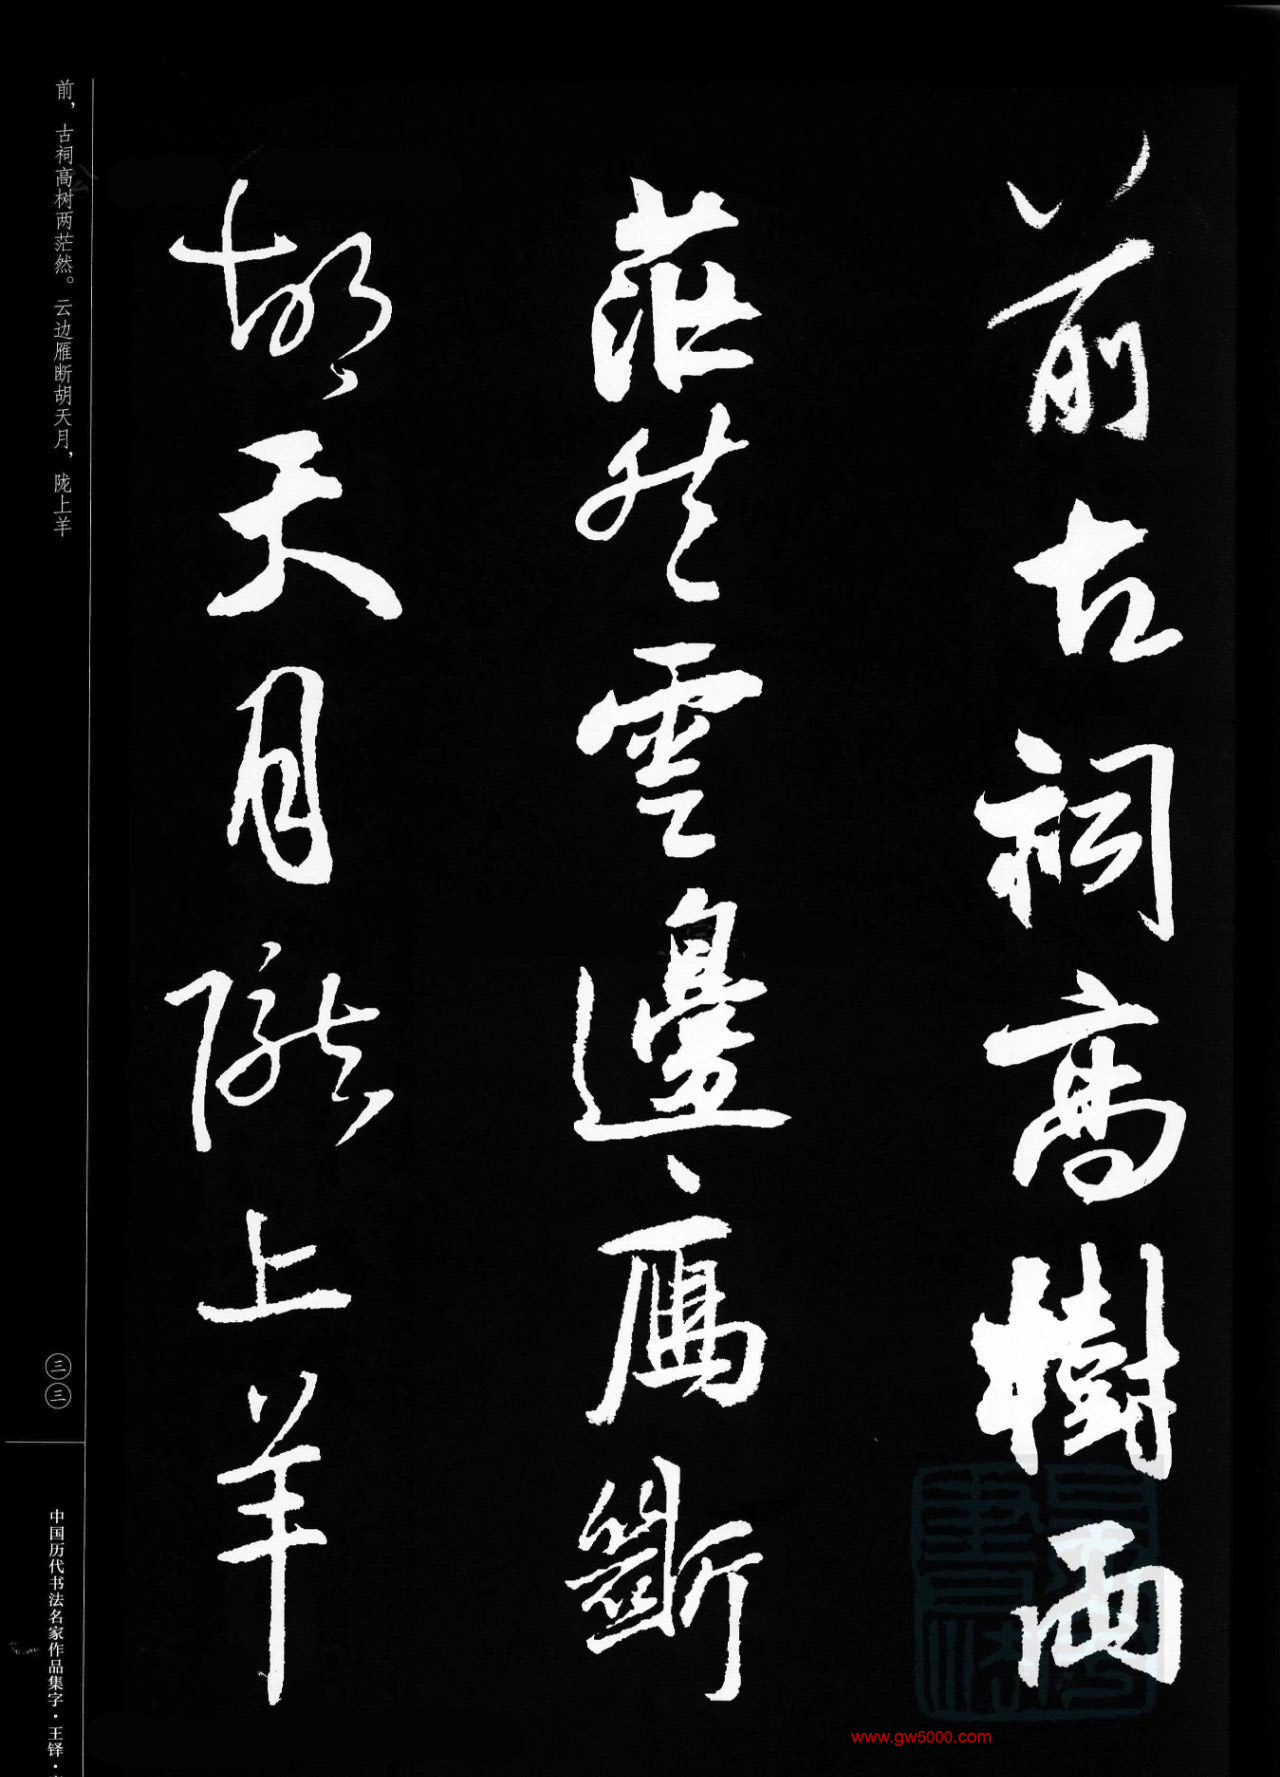 前古祠高樹兩
茫然雲邊雁斷
胡天月隴上羊
前，古祠高树两茫然。云边雁断胡天月，陇上羊
三三
中国历代书法名家作品集字·王铎·
www.gw5000.com